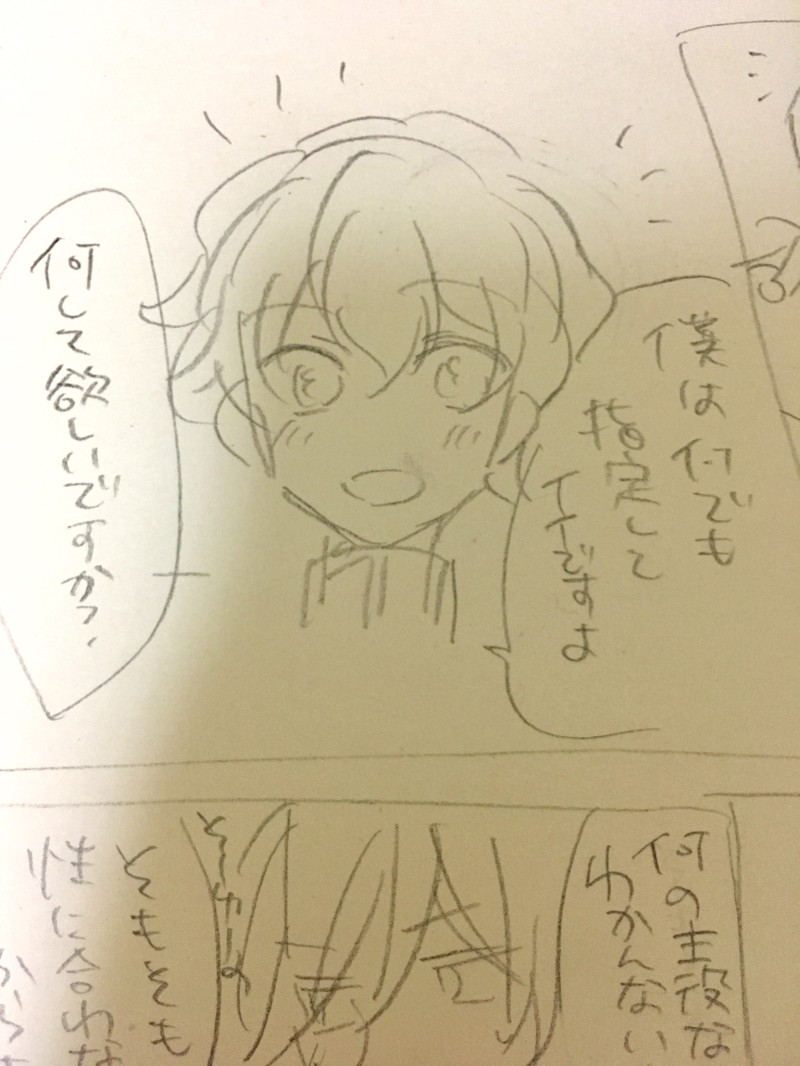 僕は何でも
指定して
イイですよ
何して欲しいですか?
何の主役な
わかんない
そーゆーの
そもそも
性に合わな
からも